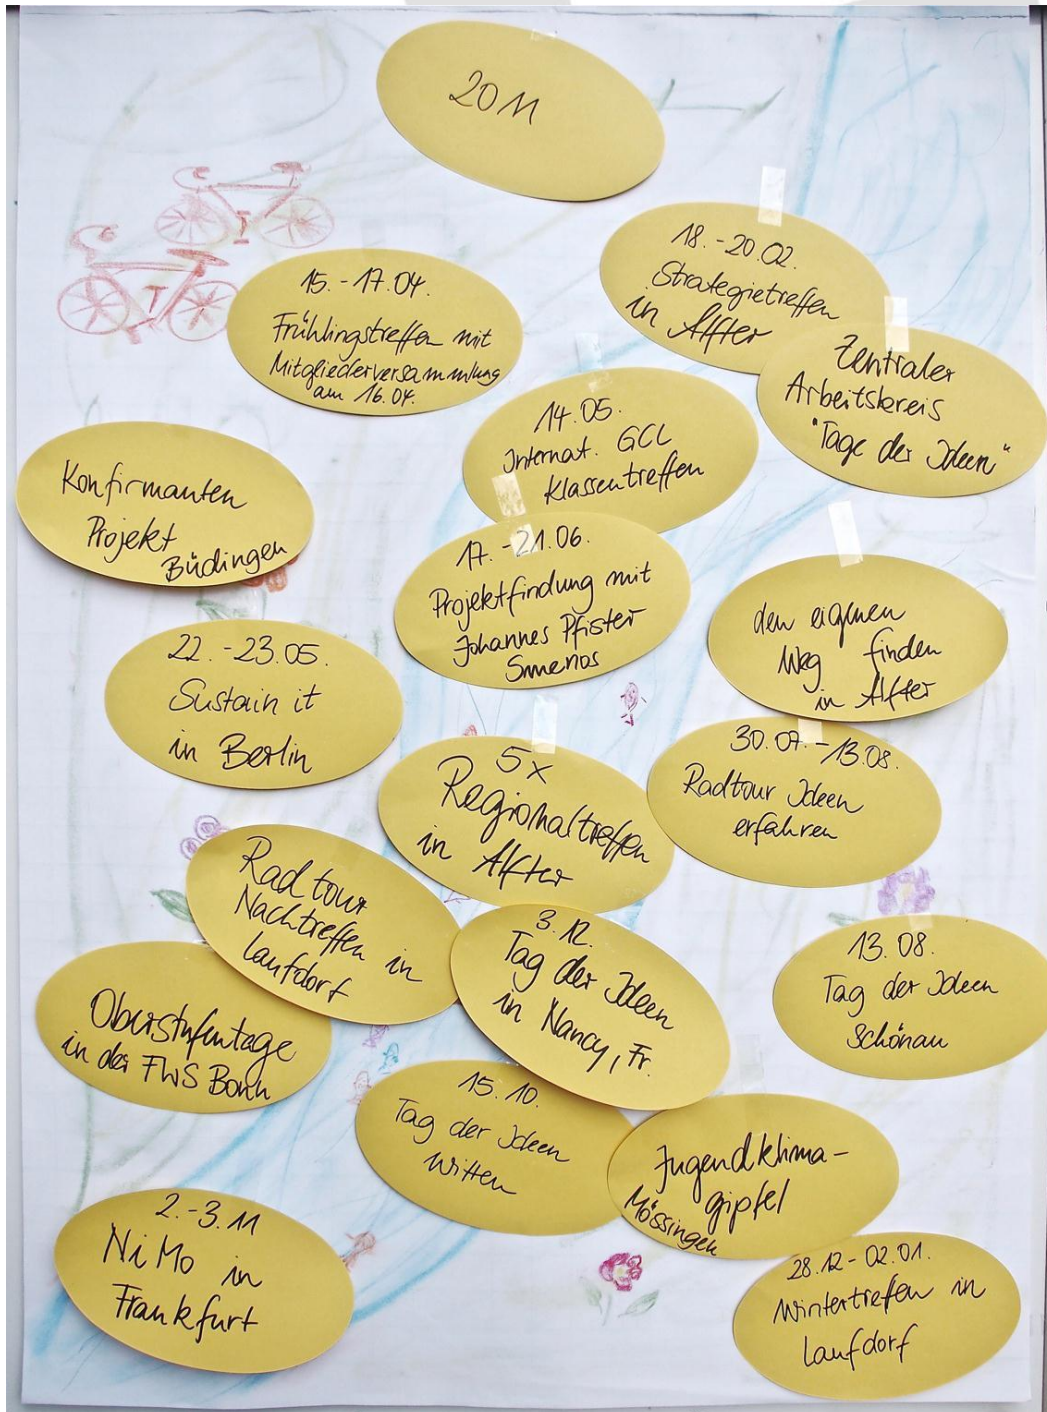 2011
18. - 20.02.
Strategietreffen
in Alfter
15. - 17.04.
Frühlingstreffen mit
Mitgliederversammlung
am 16.04.
Zentraler
Arbeitskreis
"Tage der Ideen"
14.05.
Internat. GCL
Klassentreffen
Konfirmanten
Projekt
Büdingen
17. - 21.06.
Projektfindung mit
Johannes Pfister
den eigenen
Weg finden
in Alfter
22. - 23.05.
Sustain it
in Berlin
30.07. - 13.08.
Radtour Ideen
erfahren
5x
Regionaltreffen
in Alfter
Radtour
Nachtreffen in
Laufdorf
3.12.
Tag der Ideen
in Nancy, Fr.
13.08.
Tag der Ideen
Schönau
Oberstufentage
in der FWS Bonn
15.10.
Tag der Ideen
Witten
Jugendklima-
gipfel
Mössingen
2. - 3.11
NiMo in
Frankfurt
28.12 - 02.01.
Wintertreffen in
Laufdorf